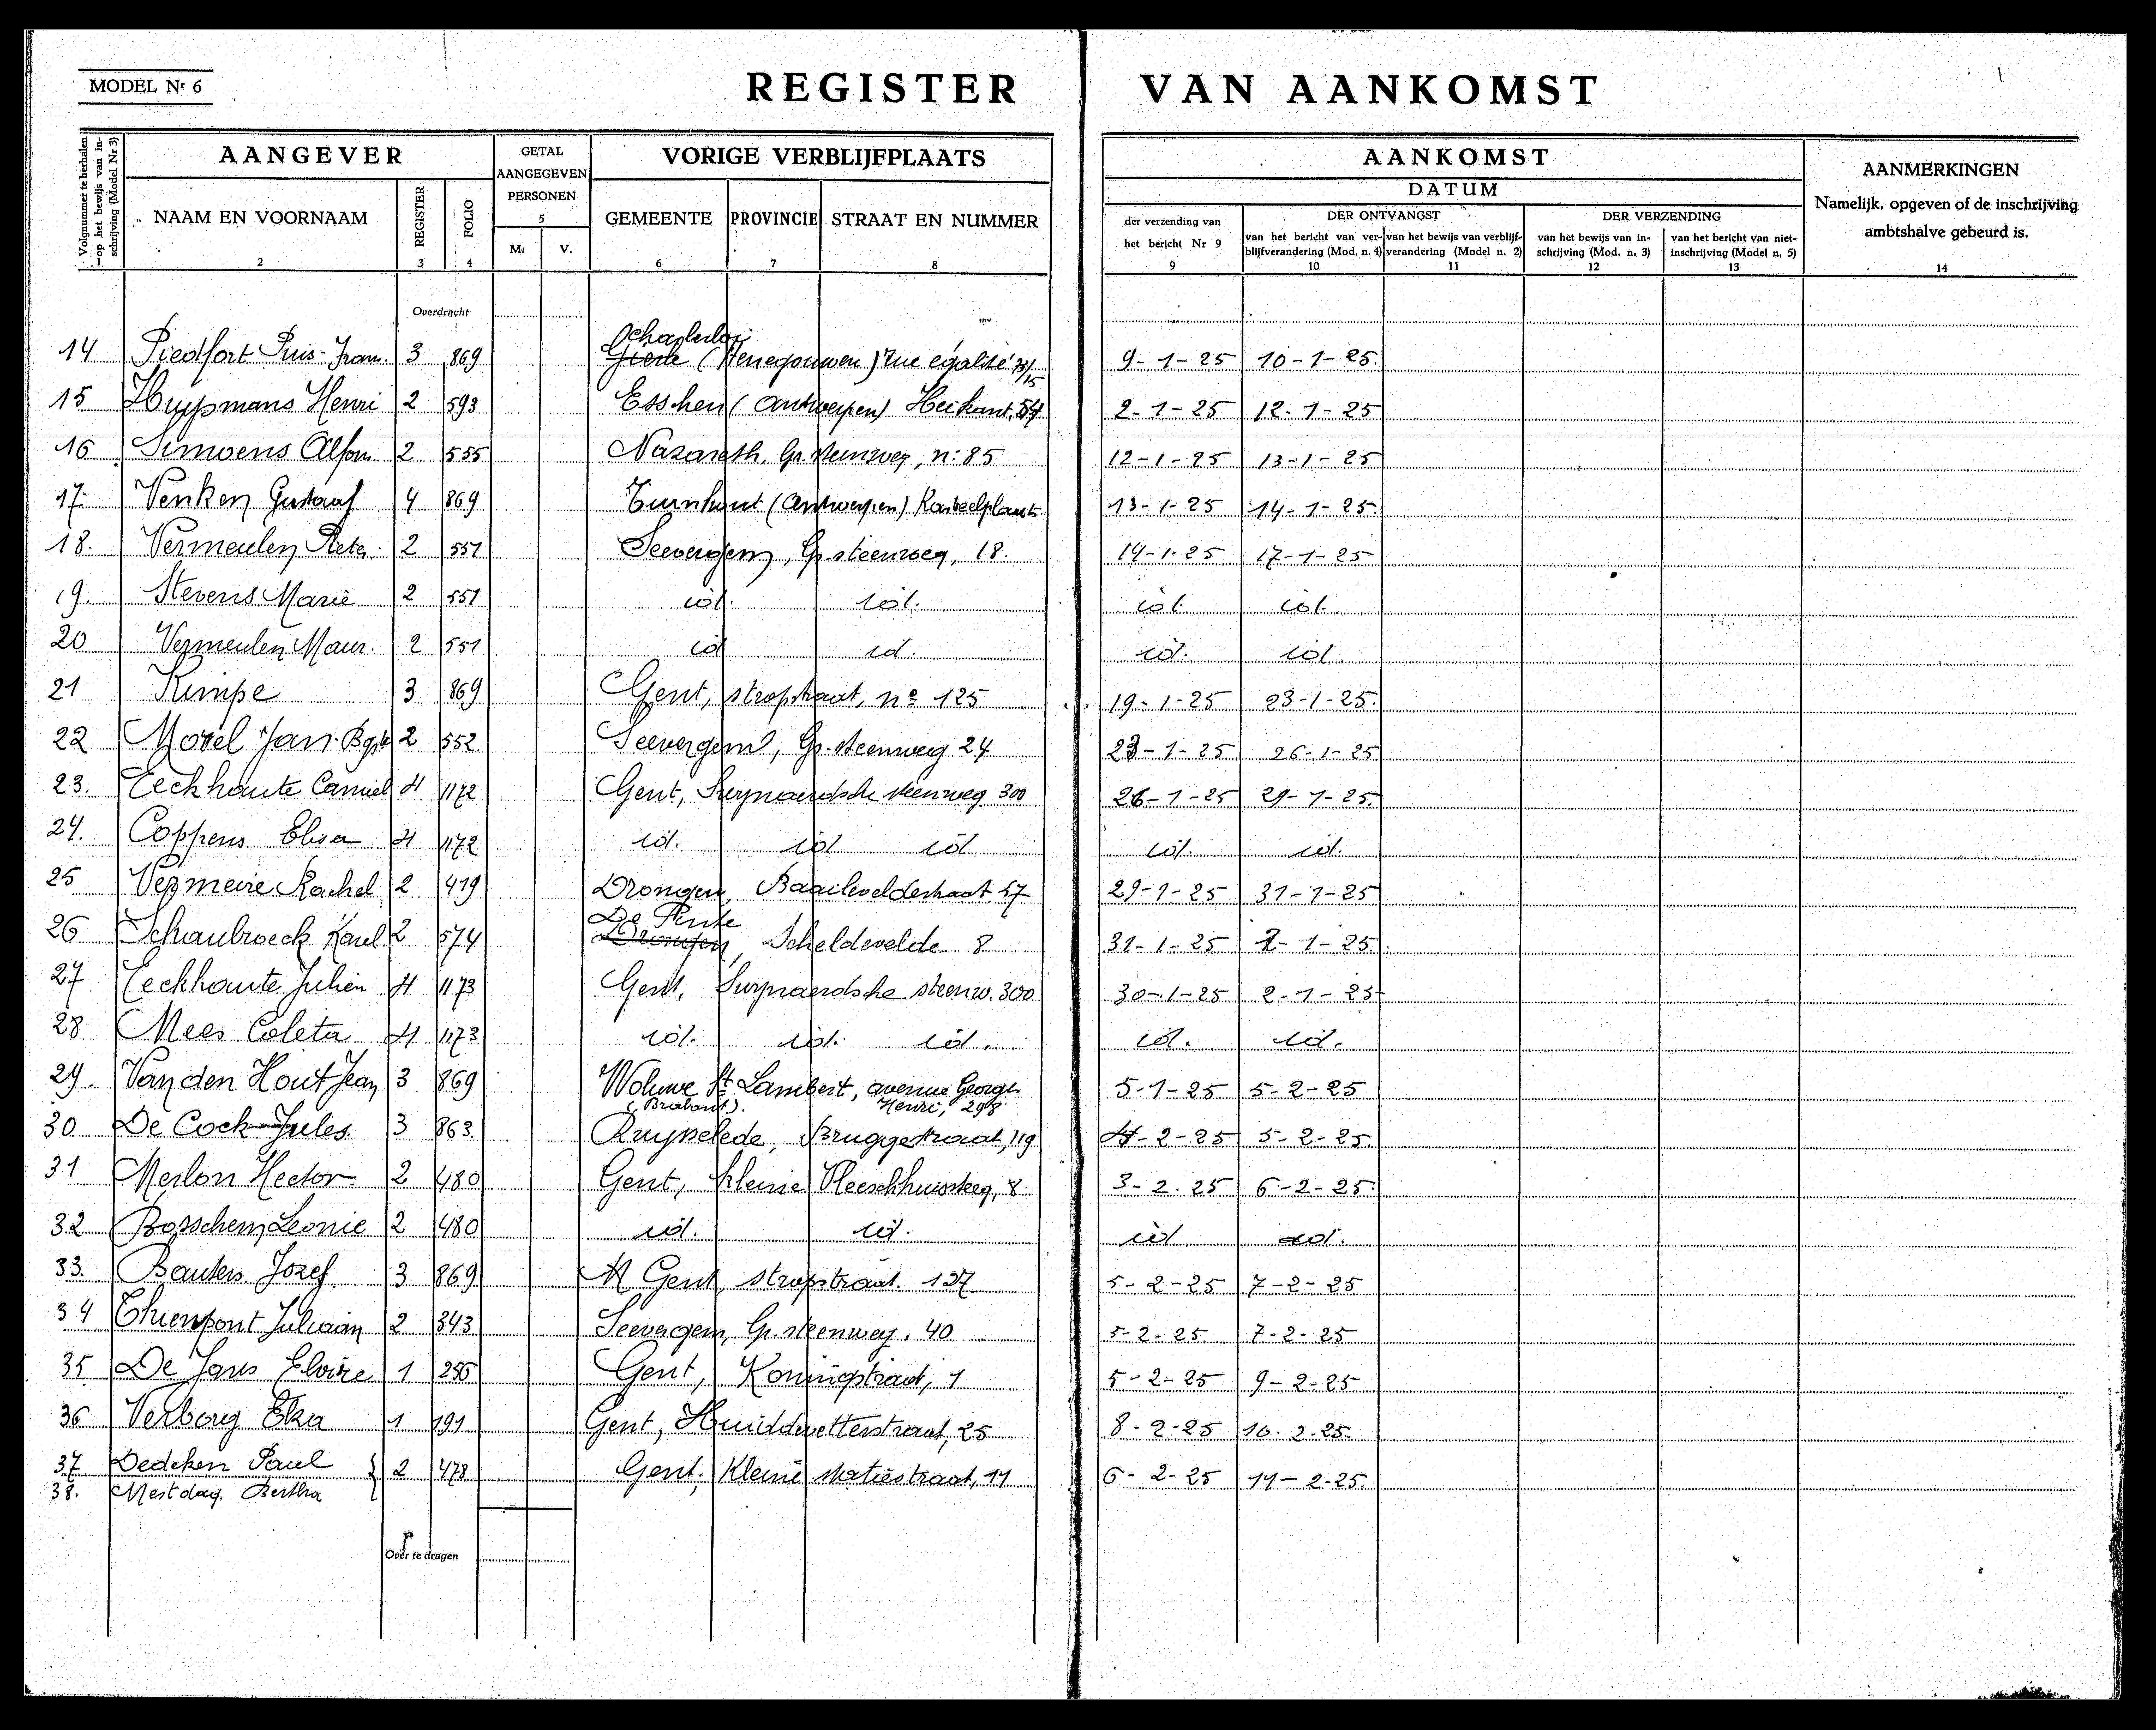 MODEL Nr 6
REGISTER VAN AANKOMST
Volgnummer te herhalen op het bewijs van inschrijving (Model Nr 3)
AANGEVER
GETAL AANGEGEVEN PERSONEN
VORIGE VERBLIJFPLAATS
AANKOMST
AANMERKINGEN
Namelijk, opgeven of de inschrijving ambtshalve gebeurd is.
DATUM
NAAM EN VOORNAAM REGISTER FOLIO 5 M: V. GEMEENTE PROVINCIE STRAAT EN NUMMER
der verzending van het bericht Nr 9
DER ONTVANGST
van het bericht van verblijfverandering (Mod. n. 4) van het bewijs van verblijfverandering (Model n. 2)
DER VERZENDING
van het bewijs van inschrijving (Mod. n. 3) van het bericht van niet-inschrijving (Model n. 5)
1 2 3 4 6 7 8 9 10 11 12 13 14
Overdracht
14 Piedfort Puis-Fran. 3 869 (Henegouwen) rue égalité 13/15 9-1-25 10-1-25.
15 Huypmans Henri 2 593 Esschen (Antwerpen) Heikant, 54 2-1-25 12-1-25
16 Simoens Alfons 2 555 Nazareth, Gr. steenweg, n: 85 12-1-25 13-1-25
17. Venken Gustaaf 4 869 Turnhout (Antwerpen) Kasteelplaats 13-1-25 14-1-25.
18. Vermeulen Pieter 2 551 Seevergem, Gr. steenweg, 18. 14-1-25 17-1-25
19. Stevens Marie 2 551 id. id. id. id.
20 Vermeulen Maur. 2 551 id id. id. id.
21 Kimpe 3 869 Gent, stropstraat, no 125 19-1-25 23-1-25.
22 Morel Jan-Bpt 2 552 Seevergem, Gr. steenweg 24 23-1-25 26-1-25
23. Eeckhoute Camiel 4 1172 Gent, Swynaerdsche steenweg 300 26-1-25 29-1-25.
24. Coppens Elisa 4 1172 id. id id id. id.
25 Vermeire Rachel 2 419 Drongen, Baarleveldestraat 57 29-1-25 31-1-25
26 Schaubroeck Karel 2 574 De Pinte Drongen, Scheldevelde 8 31-1-25 2-1-25.
27 Eeckhoute Julien 4 1173 Gent, Swynaerdsche steenw. 300 30-1-25 2-1-25
28 Mees Coleta 4 1173 id. id. id. id. id.
29. Van den Hout Jean 3 869 Woluwe St Lambert, avenue Georges
(Brabant). Henri, 298 5-1-25 5-2-25
30 De Cock Jules. 3 863 Ruyselede, Bruggestraat, 119 4-2-25 5-2-25.
31 Merlon Hector 2 480 Gent, Kleine Vleeschhuissteeg, 8. 3-2.25 6-2-25.
32 Bosschem Leonie 2 480 id. id. id id.
33. Bauters Jozef 3 869 Gent, stropstraat. 127 5-2-25 7-2-25
34 Thienpont Juliaan 2 343 Seevergem, Gr. steenweg. 40 5-2-25 7-2-25
35 De Jans Elvire 1 256 Gent, Koningstraat, 1 5-2-25 9-2-25
36 Verborg Elza 1 191 Gent, Huiddevetterstraat, 25 8-2-25 10.2.25.
37 Dedeken Paul 2 478 Gent, Kleine statiestraat, 11 6-2-25 11-2-25.
38. Mestdag. Bertha
Over te dragen